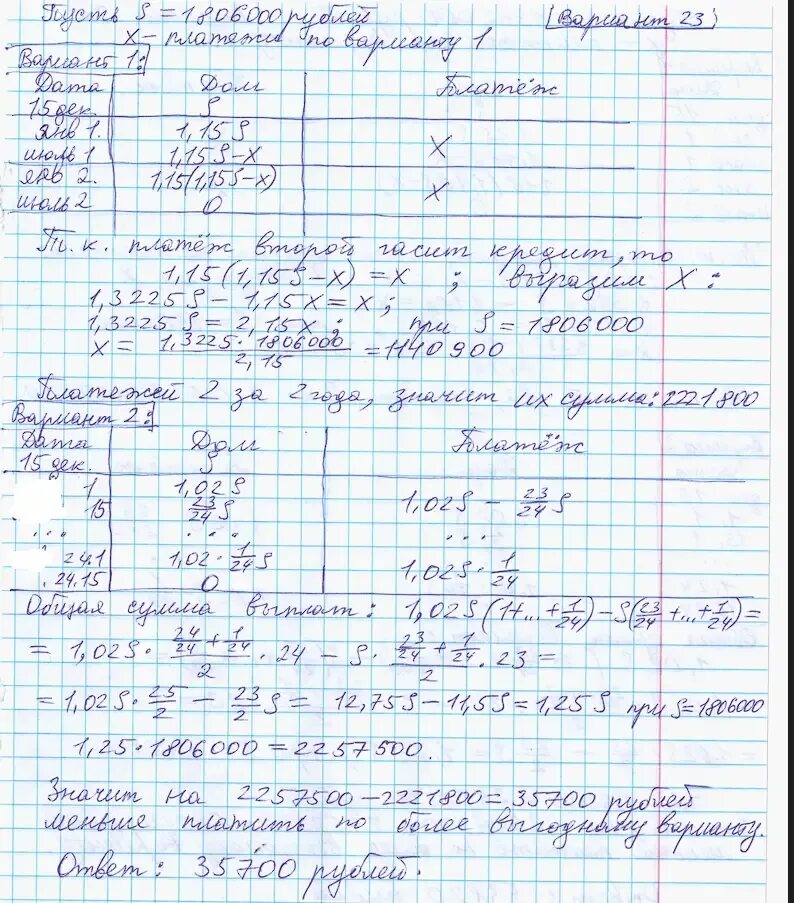 Пусть S = 1806000 рублей [Вариант 23]
x – платежи по варианту 1
Вариант 1:
Дата Долг Платёж
15 дек. S
янв 1. 1,15S
июль 1 1,15S-x x
янв 2. 1,15(1,15S-x)
июль 2 0 x
Т.к. платёж второй гасит кредит, то
1,15(1,15S-x) = x ; выразим x :
1,3225S - 1,15x = x ;
1,3225S = 2,15x ; при S = 1806000
x = \frac{1,3225·1806000}{2,15} = 1140900
Платежей 2 за 2 года, значит их сумма: 2221800
Вариант 2:
Дата Долг Платёж
15 дек. S
1 1,02S
15 \frac{23}{24}S 1,02S - \frac{23}{24}S
... ... ...
24.1 1,02·\frac{1}{24}S 1,02S·\frac{1}{24}
24.15 0
Общая сумма выплат: 1,02S(1+...+\frac{1}{24}) - S(\frac{23}{24}+...+\frac{1}{24}) =
= 1,02S·\frac{\frac{24}{24}+\frac{1}{24}}{2}·24 - S·\frac{\frac{23}{24}+\frac{1}{24}}{2}·23 =
= 1,02S·\frac{25}{2} - \frac{23}{2}S = 12,75S - 11,5S = 1,25S при S=1806000
1,25·1806000 = 2257500.
Значит на 2257500-2221800 = 35700 рублей
меньше платить по более выгодному варианту.
Ответ: 35700 рублей.